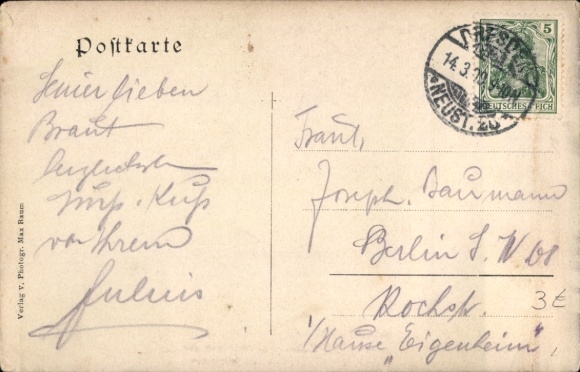 Postkarte
Seiner lieben
Braut
herzlichsten
Gruß u. Kuß
von Ihrem
Julius
Verlag v. Photogr. Max Baum
DRESDEN
14.3.10
NEUST. 26
5
DEUTSCHES REICH
Fraul.
Joseph. Baumann
Berlin S. W 68
Kochstr.
3€
i/Hause „Eigenheim“,